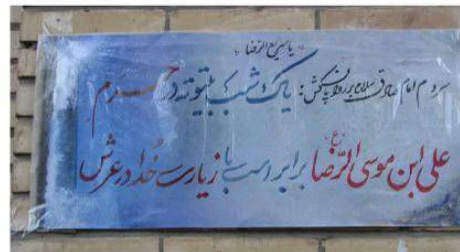 یا سریع الرضا
امام صادق سلام بر روان پاکش: یک شب بیتوته در حرم
علی ابن موسی الرّضا (ع) برابر است با زیارت خدا در عرش